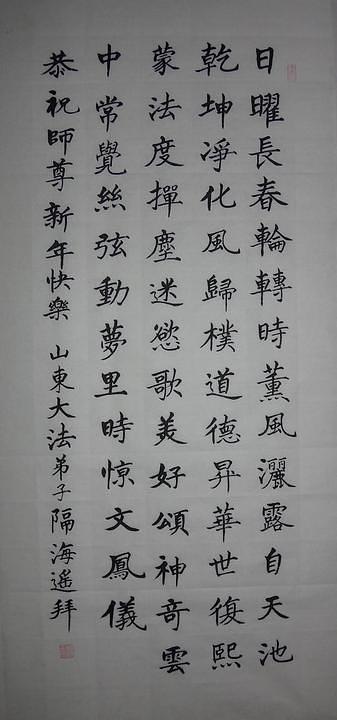 日曜長春輪轉時薰風灑露自天池
乾坤淨化風歸樸道德昇華世復熙
蒙法度撣塵迷慾歌美好頌神奇雲
中常覺絲弦動夢里時惊文鳳儀
恭祝師尊新年快樂 山東大法弟子隔海遙拜